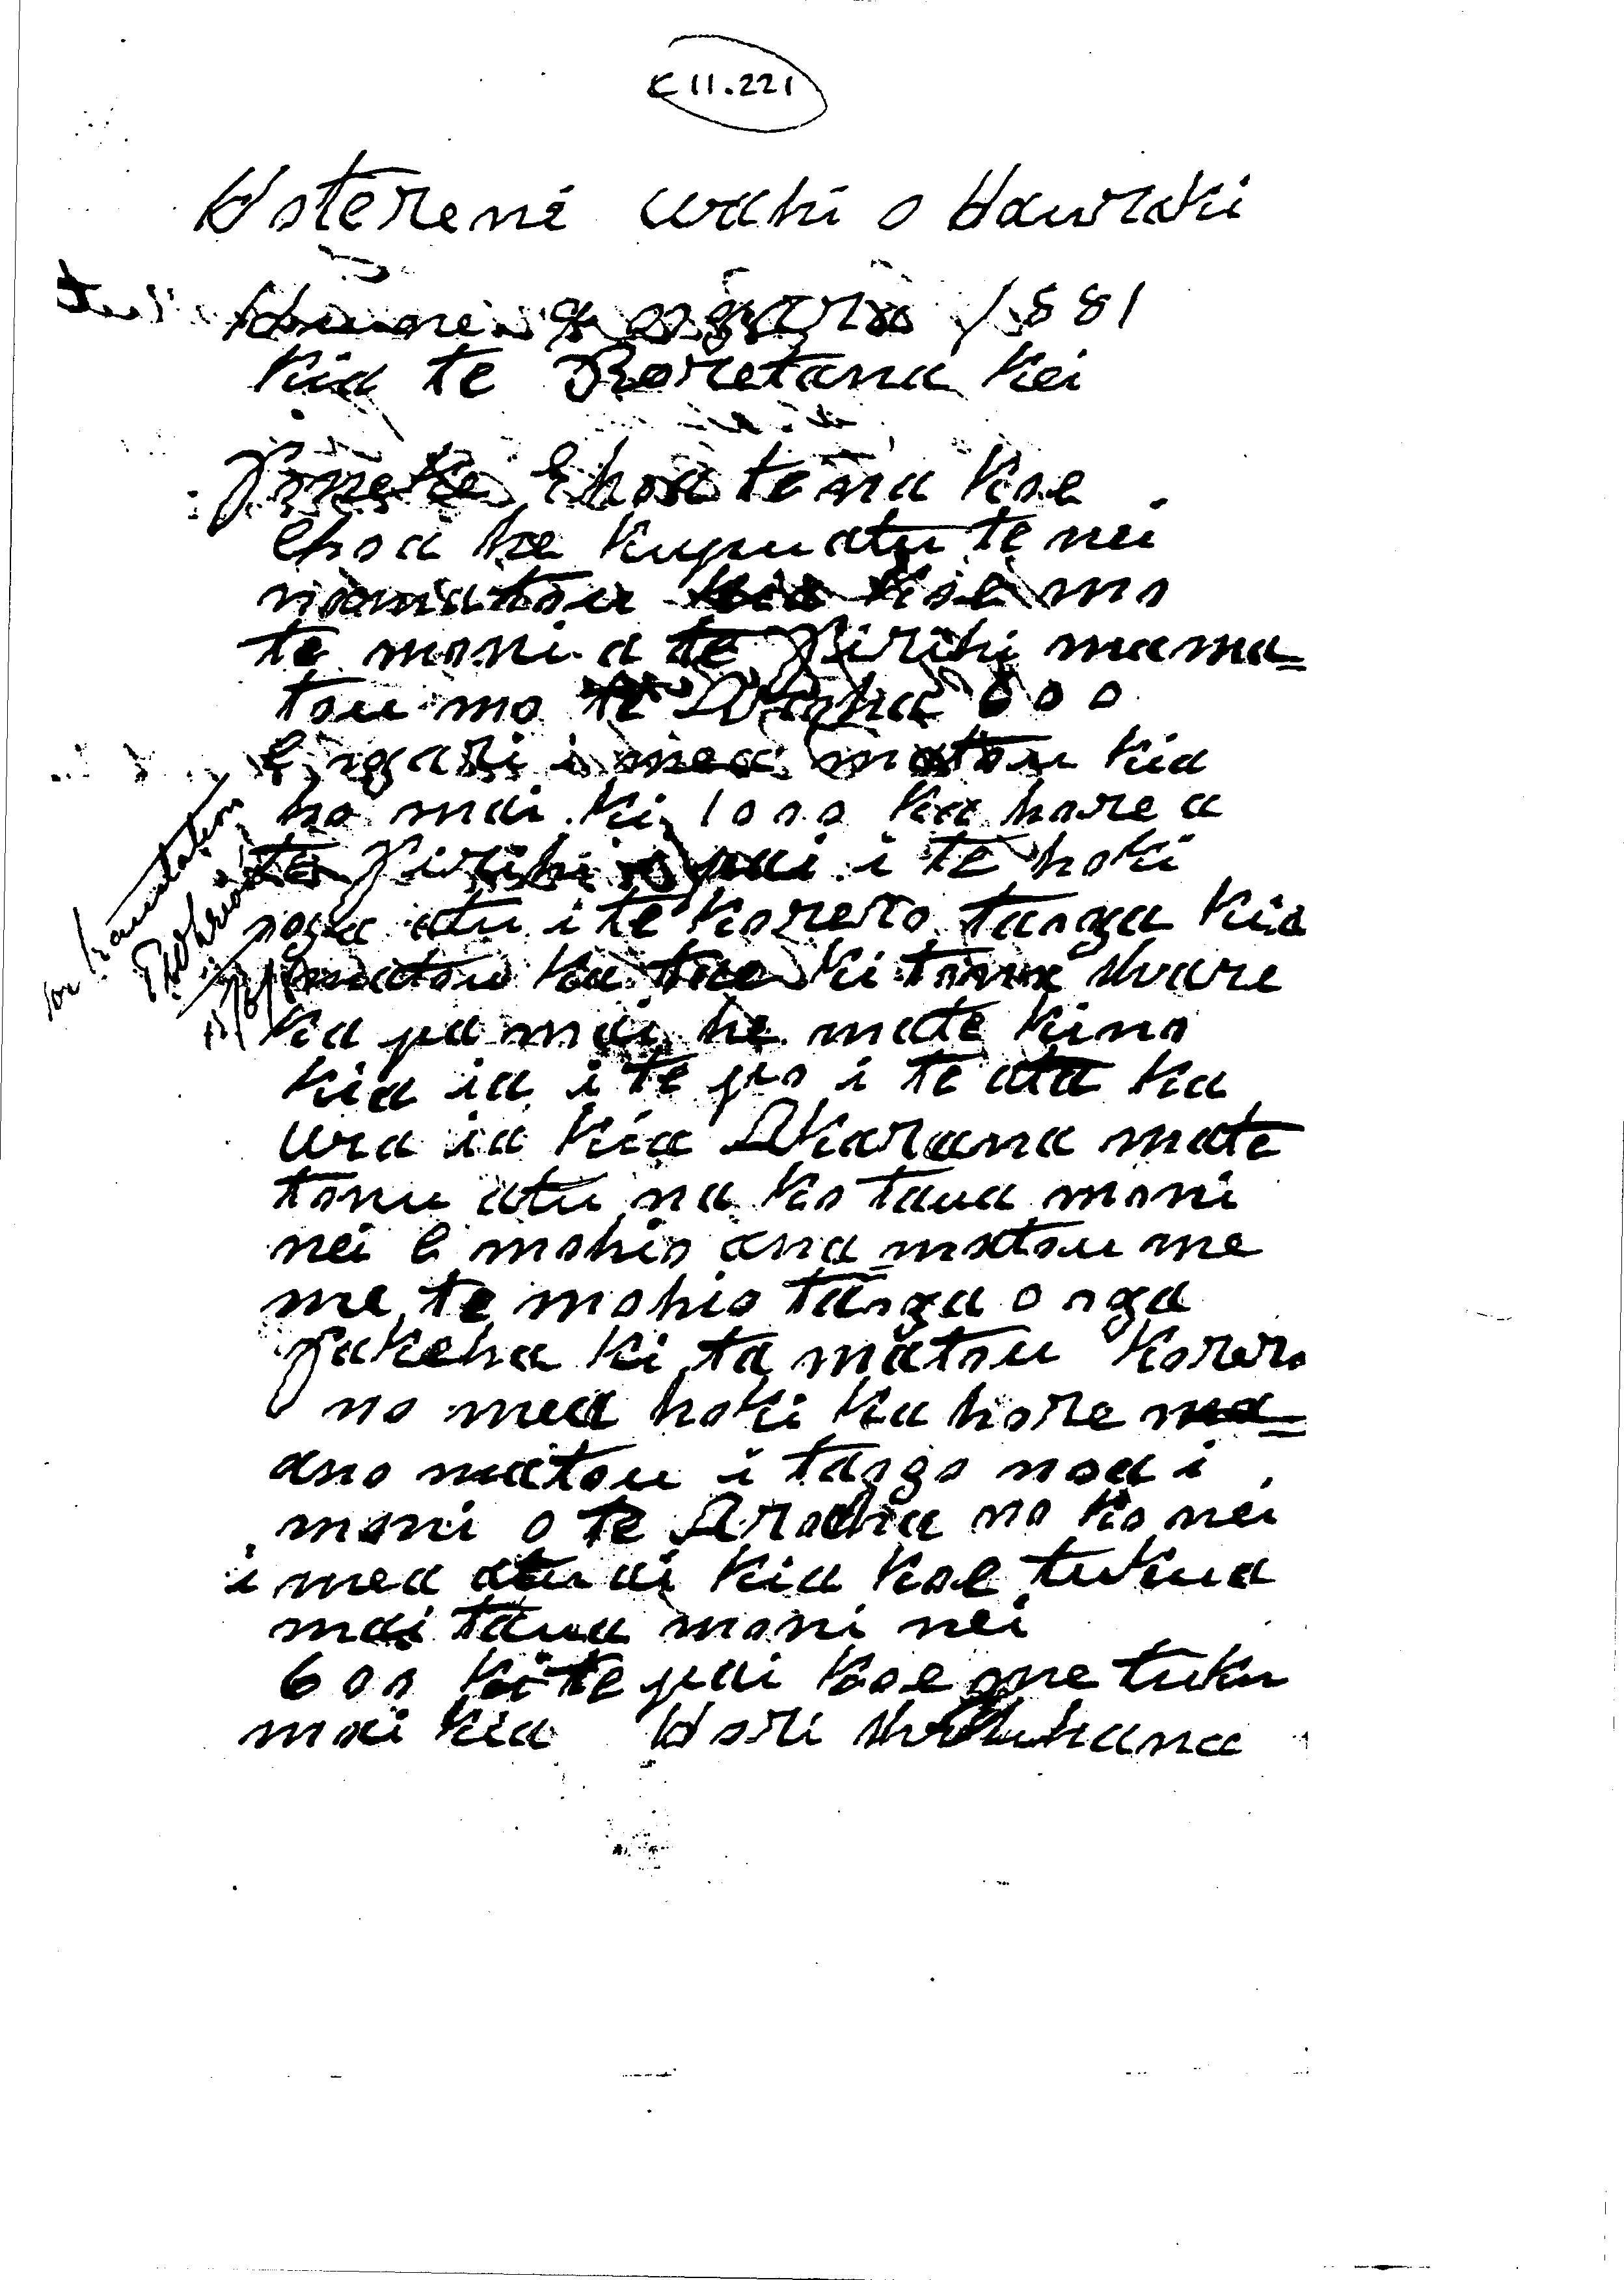 C 11.221
Hoterene wahi o Hauraki
Hune 9 o nga ra 1881
Kia te Poretana Kei
Poneke Ehoa tena Koe
Ehoa he kupu atu te nei
na matou kia koe mo
te moni a te Pirihi mama=
tou mo te Aroha 600
E ngari i mea matou kia
ho mai ki 1000 Ka hore a
te Pirihi e pai i te hoki
nga atu i te Korero tanga Kia
matou Ka tae ki tona Whare
Ka pa mai he mate kino
Kia ia i te po i te ata ka
wa ia kia Akarana mate
tonu atu na Ko taua moni
nei E mohio ana matou me
me te mohio tanga o nga
pakeha ki ta matou Korero
no mea hoki Ka hore ma=
ano matou i tango noa i
moni o te Aroha no Ko nei
i mea atu ai Kia Koe tukua
mai taua moni nei
600 Ki te pai Koe me tuku
mai kia Hori
for translation